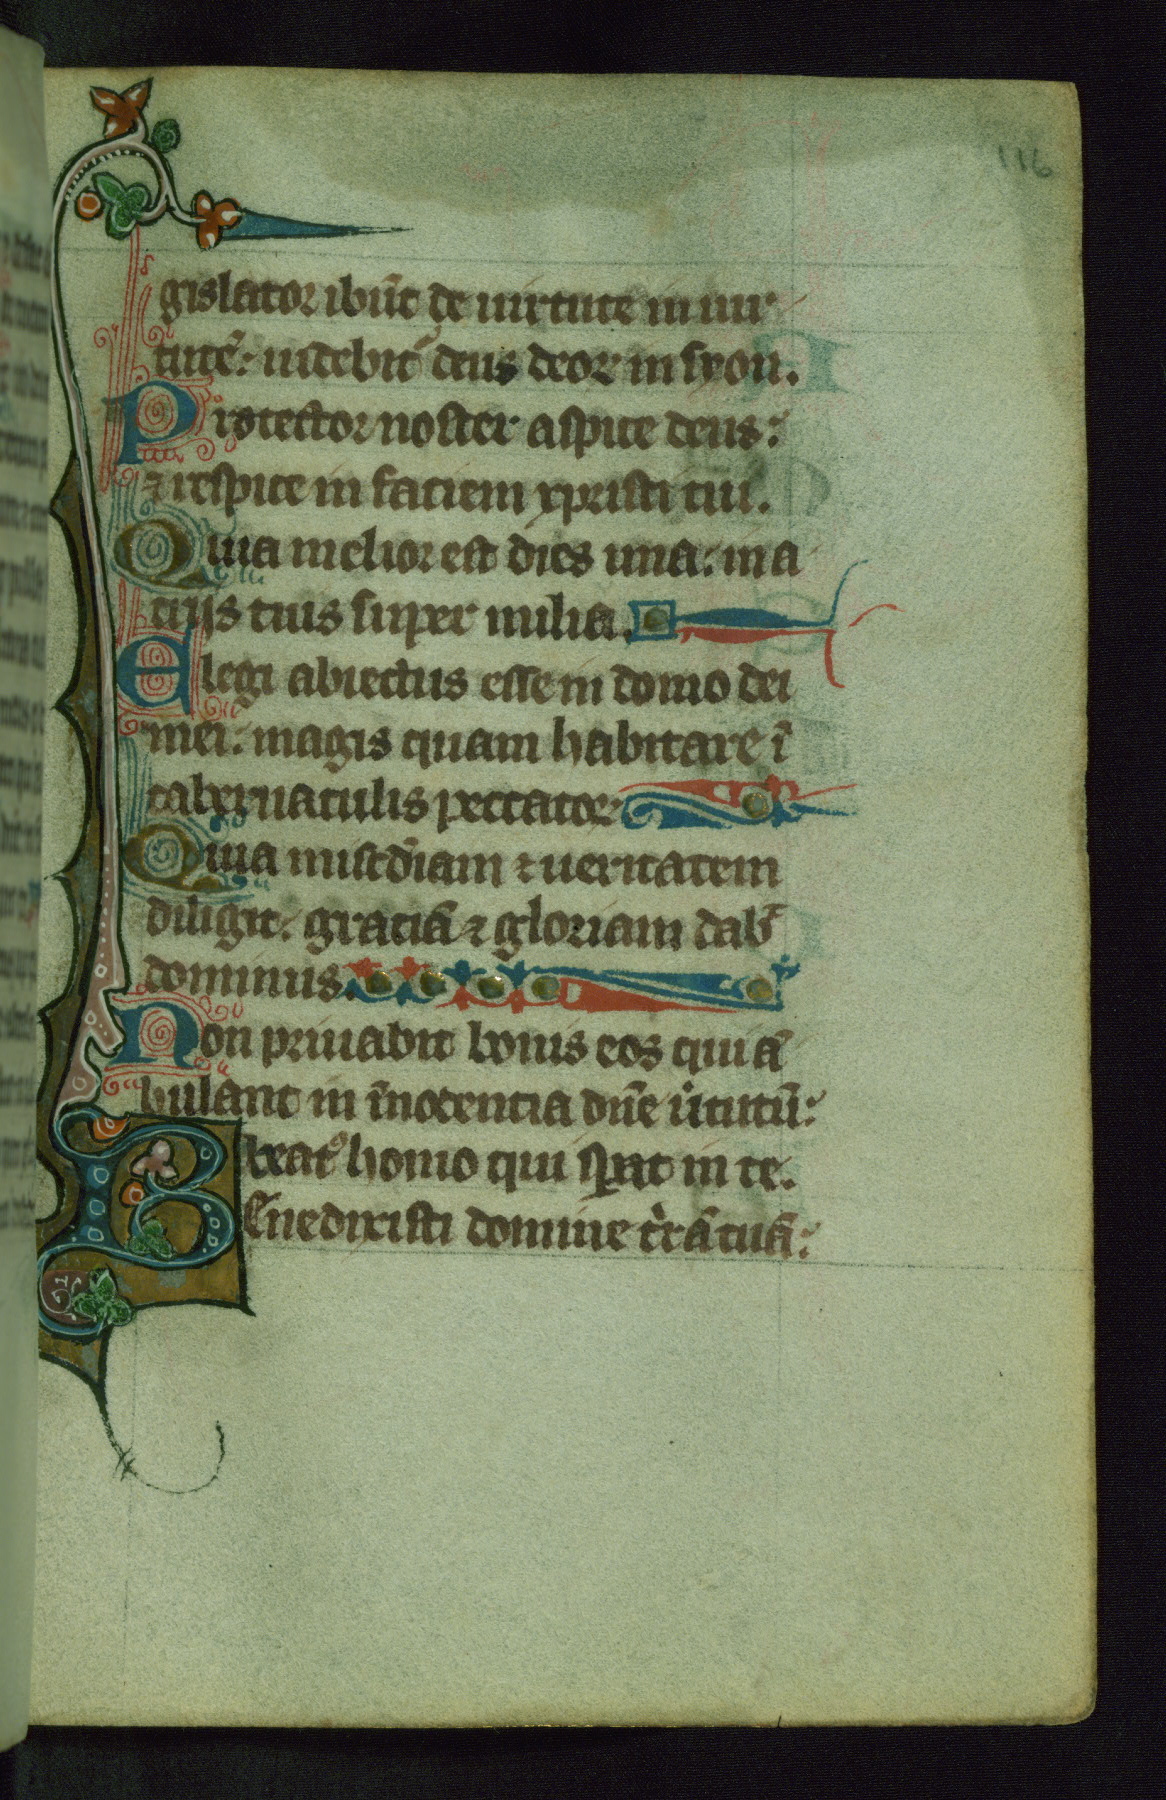 116
gislator ibūt de uirtute in uir
tutē: uidebit᷑ deus deoꝝ in syon.
Protector noster aspice deus:
⁊ respice in faciem xpristi tui.
Quia melior est dies una: in a
trijs tuis super milia.
Elegi abiectus esse in domo dei
mei: magis quam habitare ī
tabernaculis peccatoꝝ
Quia miscd̄iam ⁊ ueritatem
diligit: graciā ⁊ gloriam dab᷑
dominus.
Non priuabit bonis eos qui ā
bulant in īnocentia dn̄e uͥtutū:
beatꝰ homo qui sꝑat in te.
Benedixisti domine tr̄ā tuā: